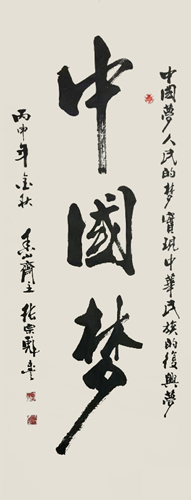 中國夢人民的梦實現中華民族的復興夢
中國梦
丙申年金秋
香山齋主張宗彝書